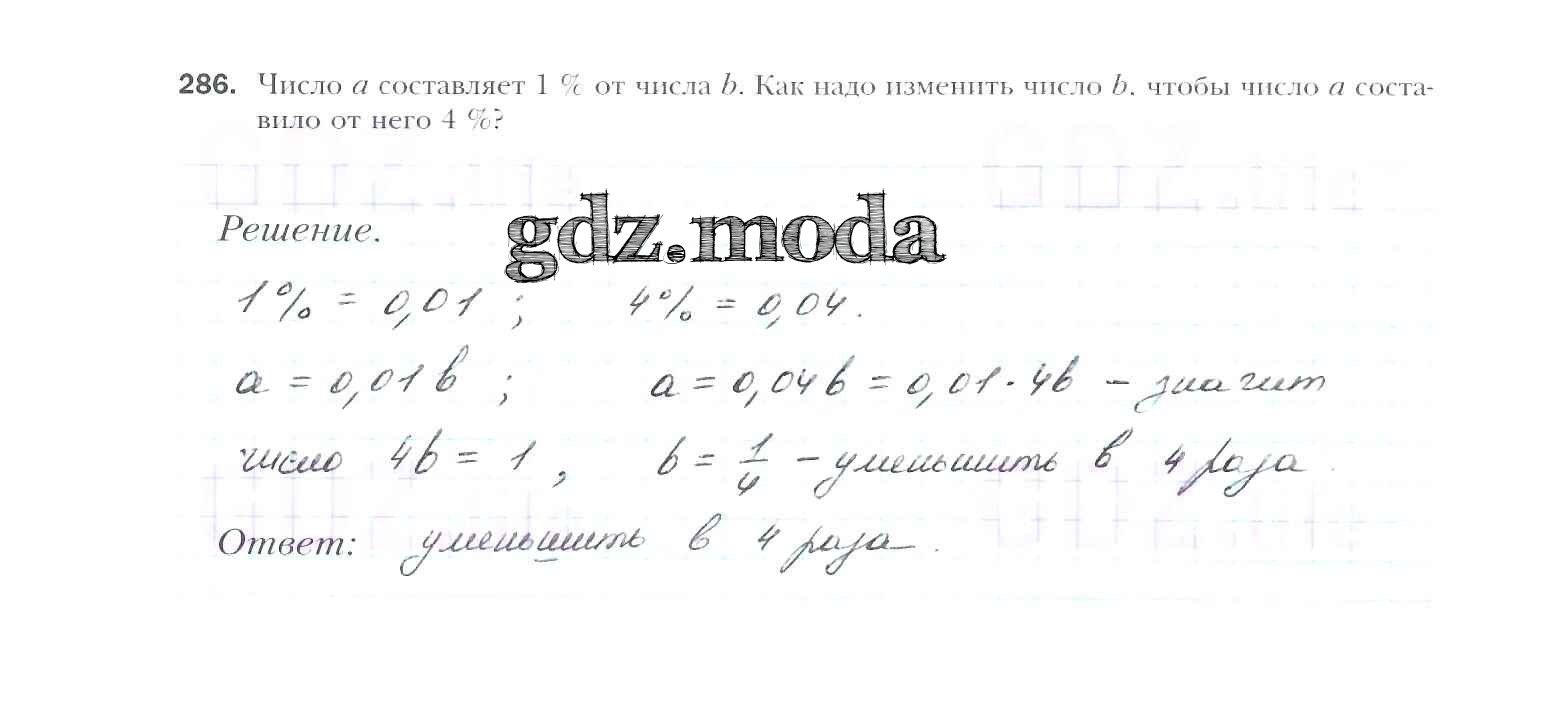 286. Число a составляет 1 % от числа b. Как надо изменить число b, чтобы число a соста-
вило от него 4 %?
gdz.moda
Решение.
1% = 0,01 ; 4% = 0,04.
a = 0,01 b ; a = 0,04 b = 0,01 · 4b – значит
число 4b = 1 , b = 1/4 – уменьшить в 4 раза.
Ответ: уменьшить в 4 раза.